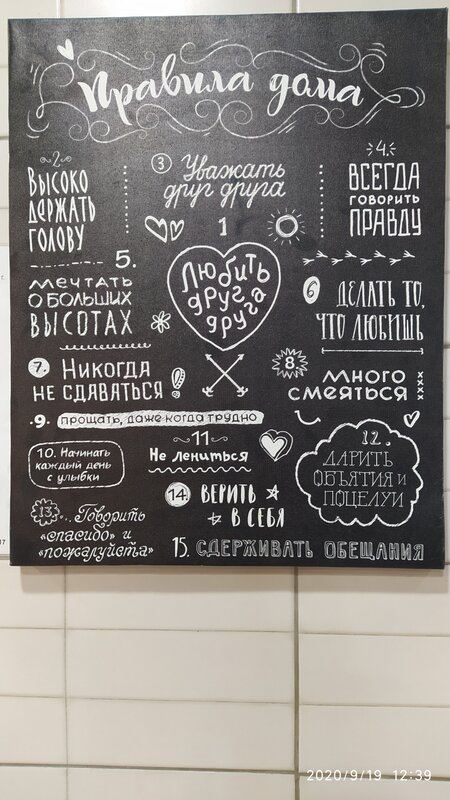 Правила дома
2.
ВЫСОКО
ДЕРЖАТЬ
ГОЛОВУ
3 Уважать
друг друга
4.
ВСЕГДА
ГОВОРИТЬ
ПРАВДУ
1
Любить
друг
друга
5.
МЕЧТАТЬ
О БОЛЬШИХ
ВЫСОТАХ
6 ДЕЛАТЬ ТО,
ЧТО ЛЮБИШЬ
7. Никогда
НЕ СДАВАТЬСЯ
8. МНОГО
СМЕЯТЬСЯ
9. прощать, даже когда трудно
10. Начинать
каждый день
с улыбки
11
Не лениться
12.
ДАРИТЬ
ОБЪЯТИЯ И
ПОЦЕЛУИ
13. Говорить
«спасибо» и
«пожалуйста»
14 ВЕРИТЬ
В СЕБЯ
15. СДЕРЖИВАТЬ ОБЕЩАНИЯ
2020/9/19 12:39